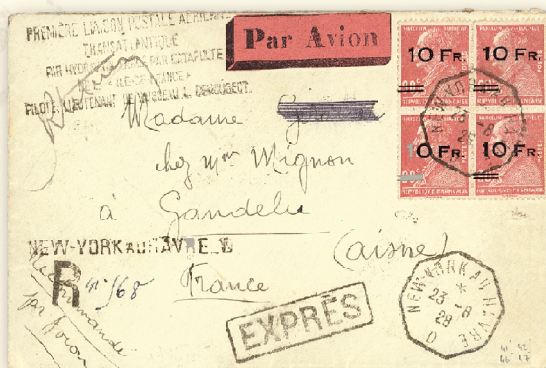 PREMIÈRE LIAISON POSTALE AÉRIENNE
TRANSATLANTIQUE
PAR HYDRAVION LANCÉ PAR CATAPULTE
"ILE-DE-FRANCE"
PILOTE: LIEUTENANT DE VAISSEAU L. DEMOUGEOT
Par Avion
10 FR. 10 FR.
0 FR. 10 FR.
Madame
chez Mme Mignon
à Gandelu
(Aisne)
NEW-YORK AU HAVRE D
France
R n° 168
Recommandé
par avion
EXPRÈS
NEW-YORK AU HAVRE
*
23 -8
28
D